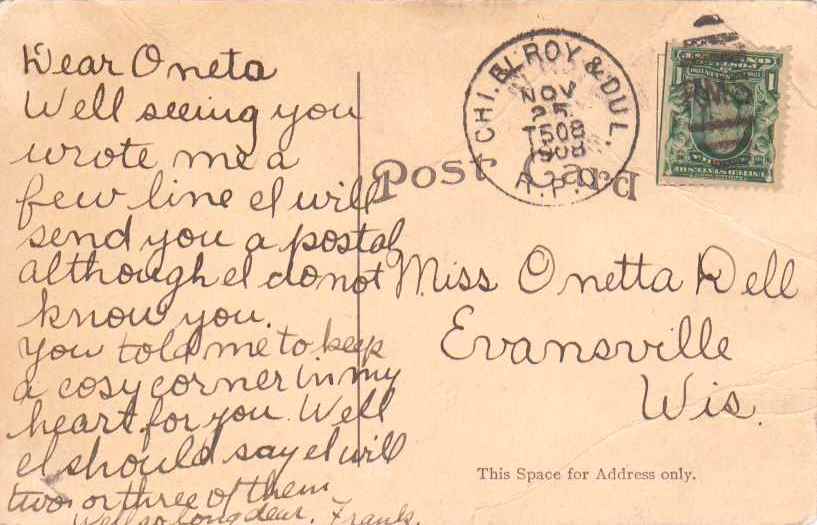 Dear Oneta
Well seeing you
wrote me a
few line I will
send you a postal
although I do not
know you.
You told me to keep
a cosy corner in my
heart for you. Well
I should say I will
two or three of them
Well so long dear. Frank.
CHI. B. L. ROY & DUL.
NOV
25
1908
R.P.O.
RMS
1
Post Card
Miss Onetta Dell
Evansville
Wis.
This Space for Address only.